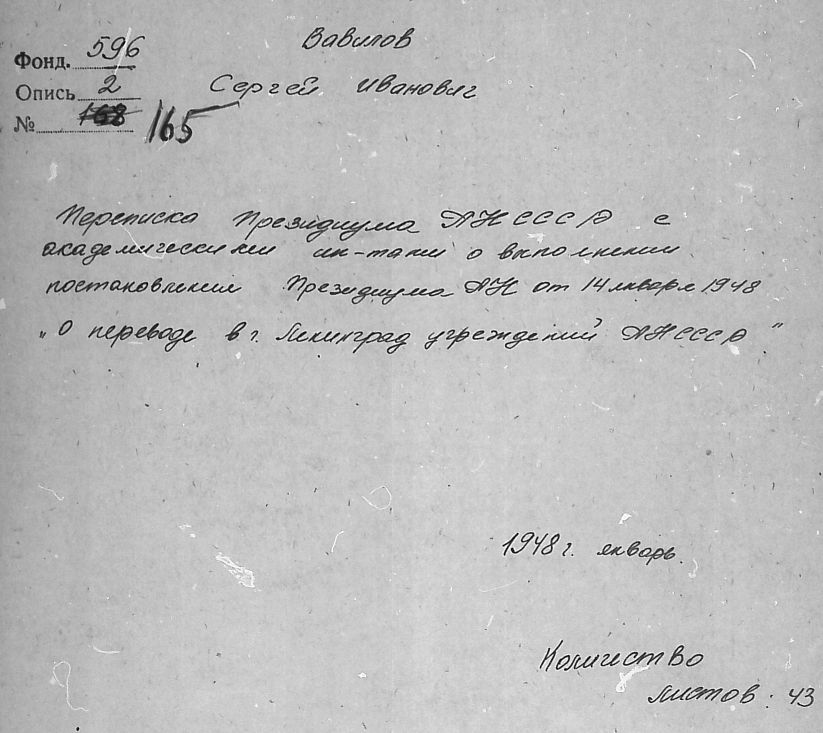 Фонд. 596
Опись 2
№ 168 165
Вавилов
Сергей Иванович
Переписка Президиума АН СССР с
академическими ин-тами о выполнении
постановления Президиума АН от 14 января 1948
„О переводе в г. Ленинград учреждений АН СССР"
1948 г. январь.
Количество
листов: 43